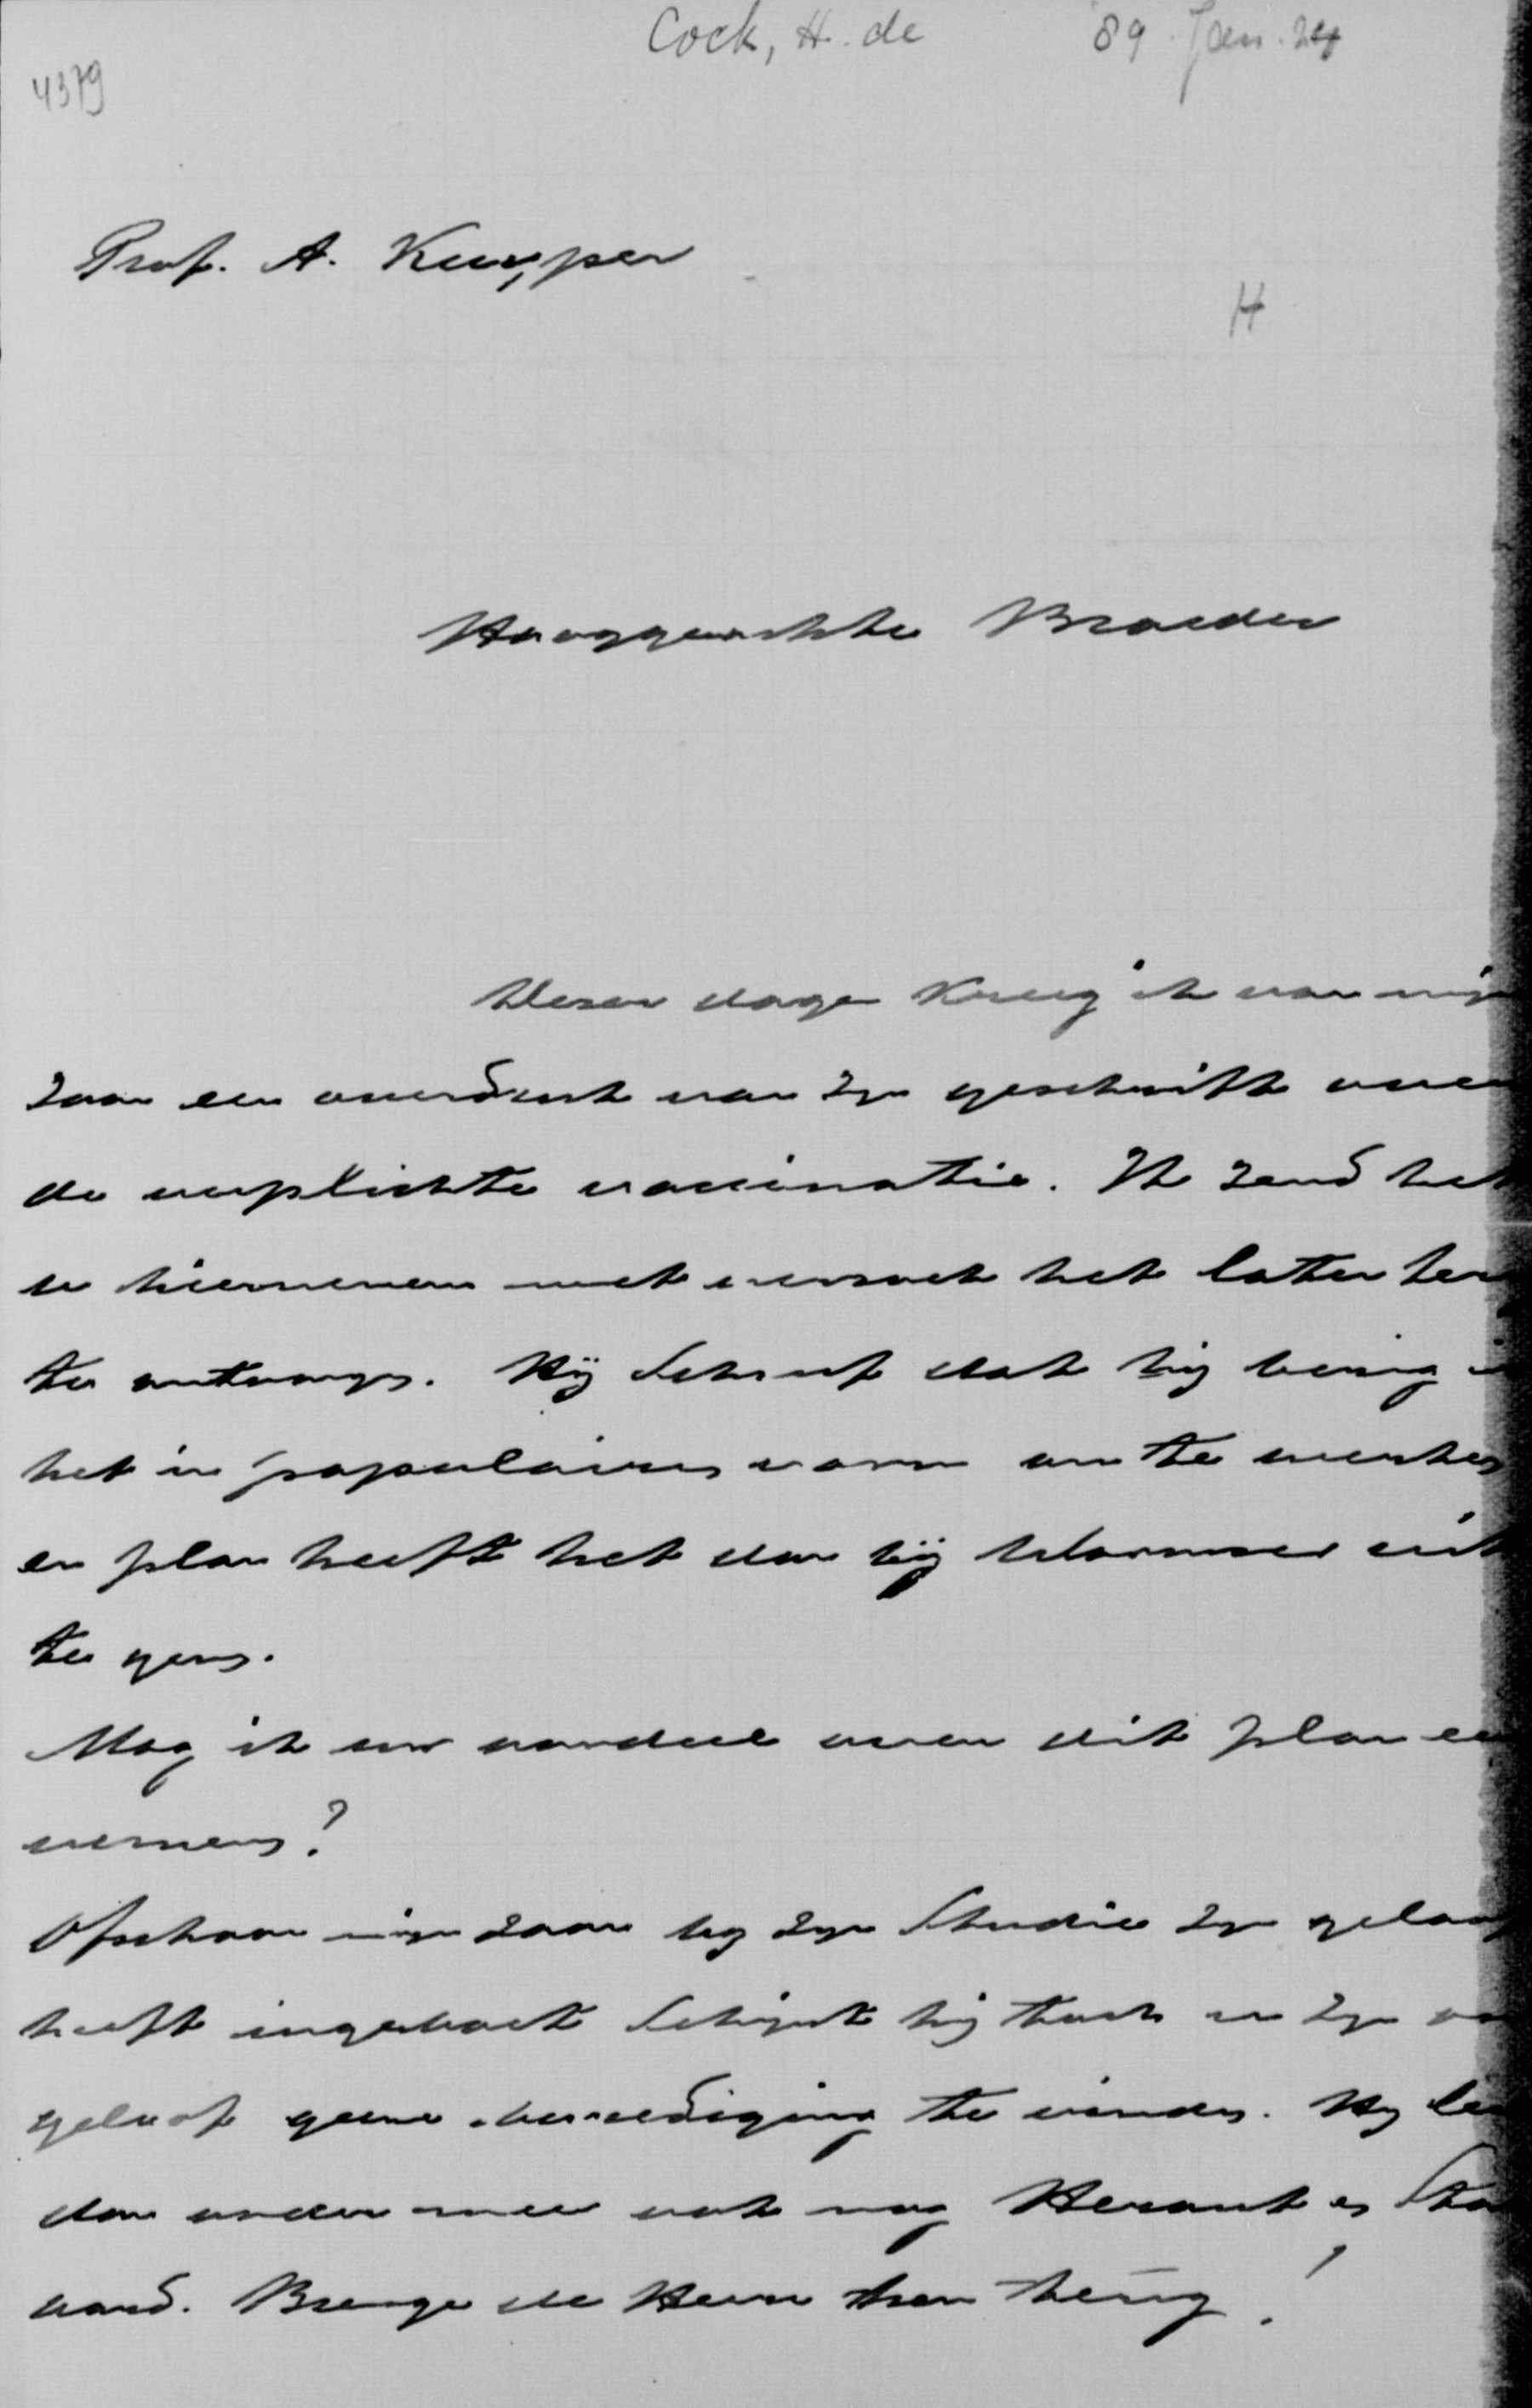 Cock, H. de '89. Jan. 24
4379
Prof. A. Kuyper
H
Hooggeachte Broeder
Dezer dagen kreeg ik van mijn
zoon een overdruk van zijn geschrift over
de verplichte vaccinatie. Ik zend het
u hiernevens met verzoek het later terug
te ontvangen. Hij schreef dat hij bezig is
het in populairen vorm om te werken
en plan heeft het dan bij uit
te geven.
Mag ik uw oordeel over dit plan eens
vernemen?
Ofschoon mijn zoon bij zijn studie zijn geloof
heeft ingeboet schijnt hij toch in zijn
geloof geene bevrediging te vinden. Hij
dan onder meer ook nog Heraut en Stan
daard. Brenge de Heere hem terug!